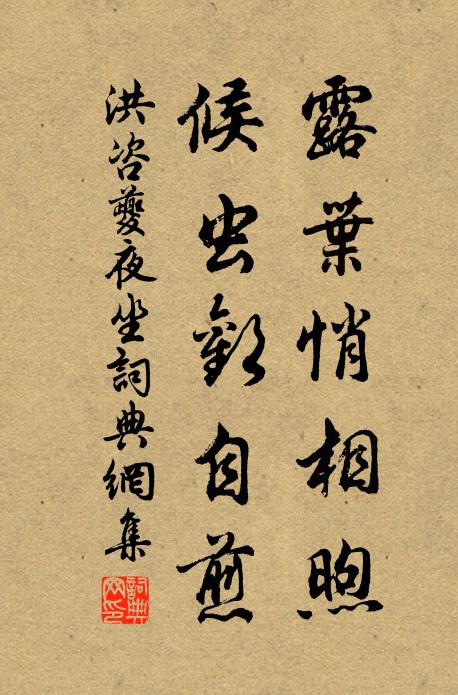 露葉悄相煦
候虫自煎
洪咨夔夜坐詞典網集
詞典网印